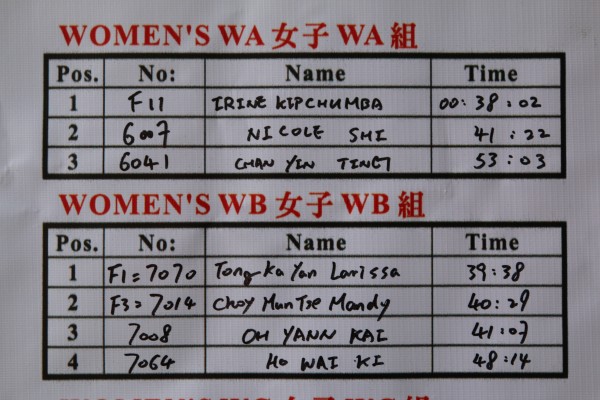 WOMEN'S WA 女子 WA 組
Pos. No: Name Time
1 F11 IRINE KIPCHUMBA 00:38:02
2 6007 NICOLE SHI 41:22
3 6041 CHAN YIN TING 53:03
WOMEN'S WB 女子 WB 組
Pos. No: Name Time
1 F1=7070 Tong Ka Yan Larissa 39:38
2 F3=7014 Choy Man Tse Mandy 40:29
3 7008 OH YANN KAI 41:07
4 7064 HO WAI KI 48:14